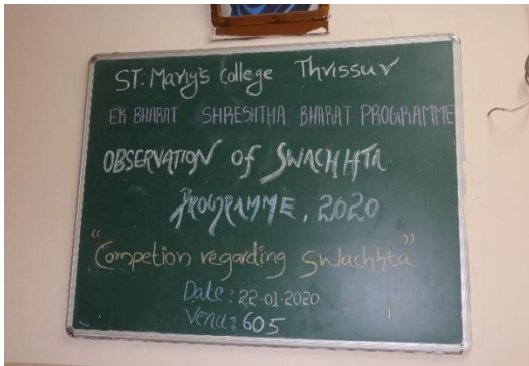 ST. Mary's College Thrissur
EK BHARAT SHRESHTHA BHARAT PROGRAMME
OBSERVATION of SWACHHTA
PROGRAMME, 2020
"Competion regarding Swachhta"
Date: 22-01-2020
Venu: 605